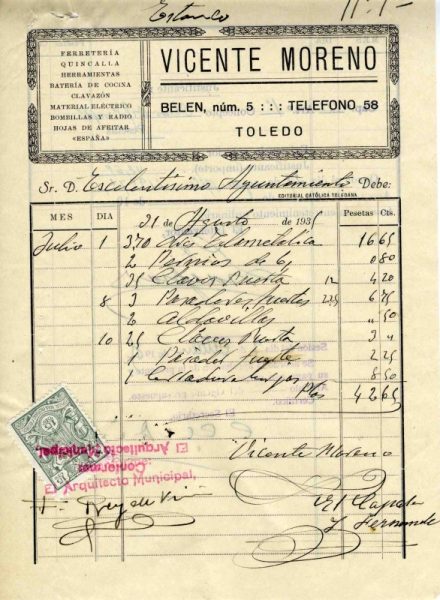 Estanco
FERRETERÍA
QUINCALLA
HERRAMIENTAS
BATERÍA DE COCINA
CLAVAZÓN
MATERIAL ELÉCTRICO
BOMBILLAS Y RADIO
HOJAS DE AFEITAR
«ESPAÑA»
VICENTE MORENO
BELEN, núm. 5 : : : TELEFONO 58
TOLEDO
Sr. D. Escelentisimo Ayuntamiento Debe:
EDITORIAL CATÓLICA TOLEDANA
MES DIA 21 de Agosto de 193 Pesetas Cts.
Julio 1 3,70 tela metalica 16 65
2 Pernios de 0 80
35 Claves Puerta 12 4 20
8 3 Pasadores fuertes 225 6 75
2 Aldavillas " 50
10 25 Claves Puerta 3 "
1 Pasador fuerte 2 25
1 8 50
Ptas 42 65
Vicente Moreno
El Arquitecto Municipal,
Conforme:
El Arquitecto Municipal,
El Capataz